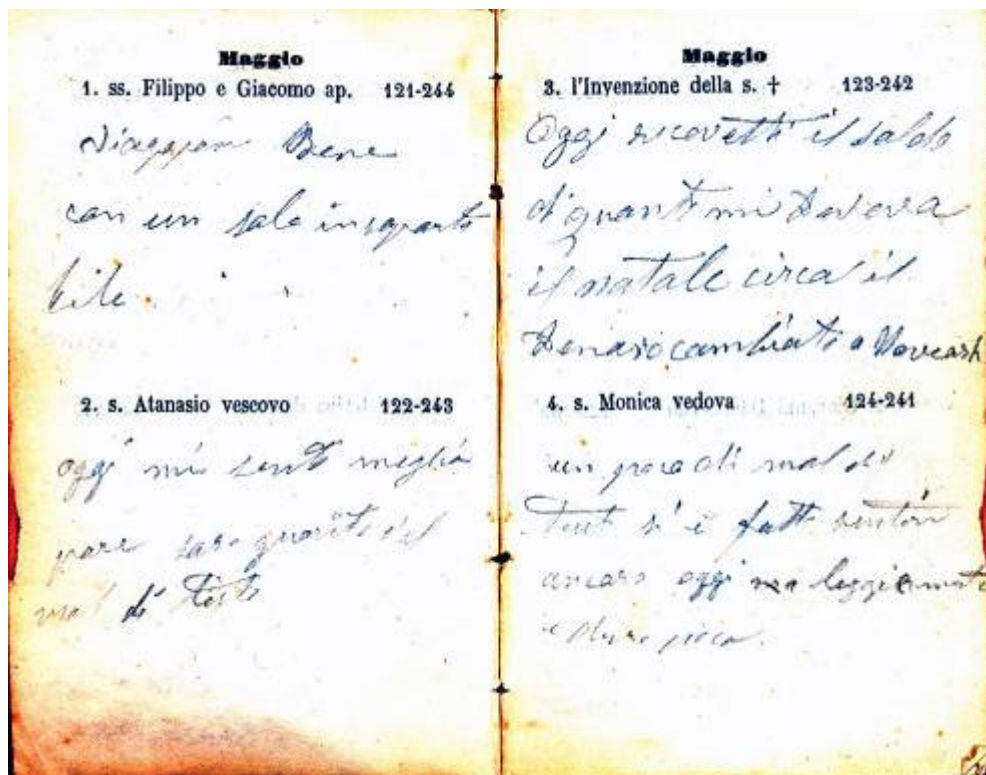 Maggio
1. ss. Filippo e Giacomo ap. 121-244
Viaggiam Bene
con un sole insoporta
bile
2. s. Atanasio vescovo 122-243
oggi mi sento meglio
pare sara guarito il
mal di testa
Maggio
3. l'Invenzione della s. † 123-242
Oggi ricevetti il saldo
di quanto mi doveva
il natale circa il
Denaro cambiato a
4. s. Monica vedova 124-241
un poco di mal di
test s'è fatt sentir
ancora oggi ma leggermente
e poco.